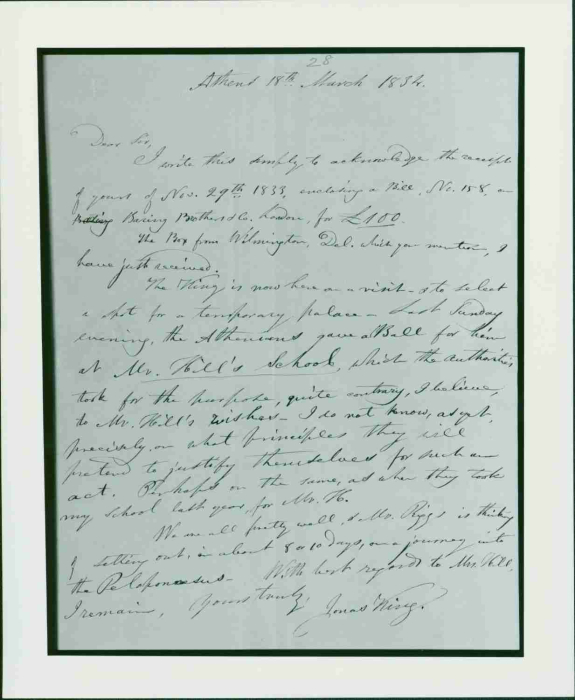 28
Athens 18th March 1834.
Dear Sir,
I write this simply to acknowledge the receipt
of yours of Nov. 29th 1833, enclosing a Bill, No. 158, on
Bearing Brothers & Co. London, for £100.
The Box from Wilmington, Del. which you mention, I
have just received.
The King is now here on a visit - & to select
a spot for a temporary palace - Last Sunday
evening, the Athenians gave a Ball for him
at Mr. Hill's School, which the authorities
took for the purpose, quite contrary, I believe,
to Mr. Hill's wishes - I do not know, as yet,
precisely, on what principles they will
pretend to justify themselves for such an
act. Perhaps on the same, as when they took
my school last year, for Mr. H.
We are all pretty well & Mr. Riggs is thinking
of setting out, in about 8 or 10 days, on a journey into
the Peloponnesus - With best regards to Mrs. Hill.
I remain, yours truly,
Jonas King.